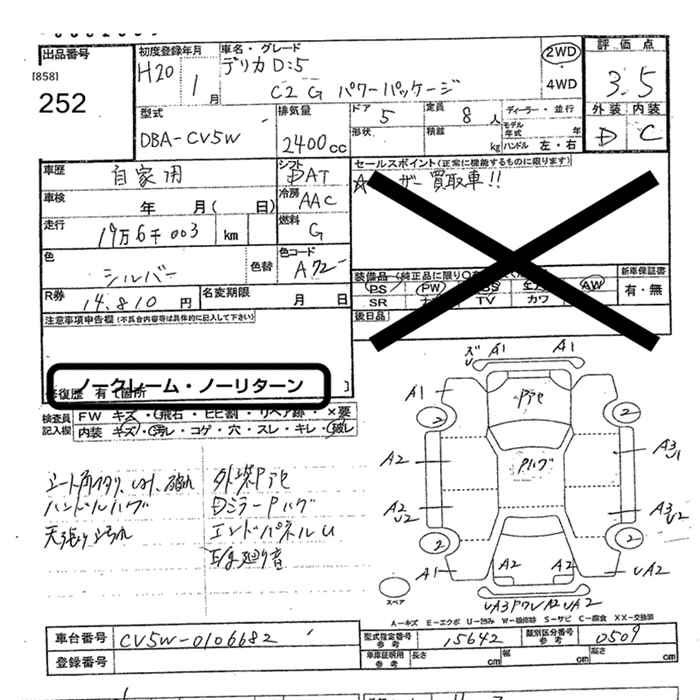 出品番号
[858]
252
初度登録年月
H20 1月
車名・グレード
デリカ D:5
C2 G パワーパッケージ
2WD
・
4WD
評価点
3.5
外装 内装
D C
型式
DBA-CV5W
排気量
2400cc
ドア 5
形状
定員 8人
積載 kg
ディーラー・並行
モデル年式 年
ハンドル 左・右
車歴
自家用
シフト
DAT
車検 年 月( 日)
冷房
AAC
走行
19万6千003 km
燃料
G
色
シルバー
色替
色コード
A72
R券
14,810円
名変期限 月 日
セールスポイント(正常に機能するものに限ります)
買取車!!
装備品(純正品に限り
PS PW AW
SR TV カワ
後日品
新車保証書
有・無
注意事項申告欄(不具合内容等は具体的に記入して下さい)
ノークレーム・ノーリターン
修復歴 有 箇所
検査員記入欄
FW キズ・飛石・ヒビ割・リペア跡・×要
内装 キズ・汚レ・コゲ・穴・スレ・キレ・破レ
ハンドルハゲ
外装Pアセ
DミラーPハゲ
エンドパネルU
A1 A1
A1
Pアセ
2 2
A2
Pハゲ
A3
U1
A2
U2
A3
U2
2 2
A1
A2 A2
UA2
スペア
A−キズ E−エクボ U−凹み W−補修跡 S−サビ C−腐食 XX−交換済
車台番号
CV5W-0106682
登録番号
型式指定番号
参考
15642
類別区分番号
参考
0509
車庫証明用
参考
長さ cm 幅 cm 高さ cm